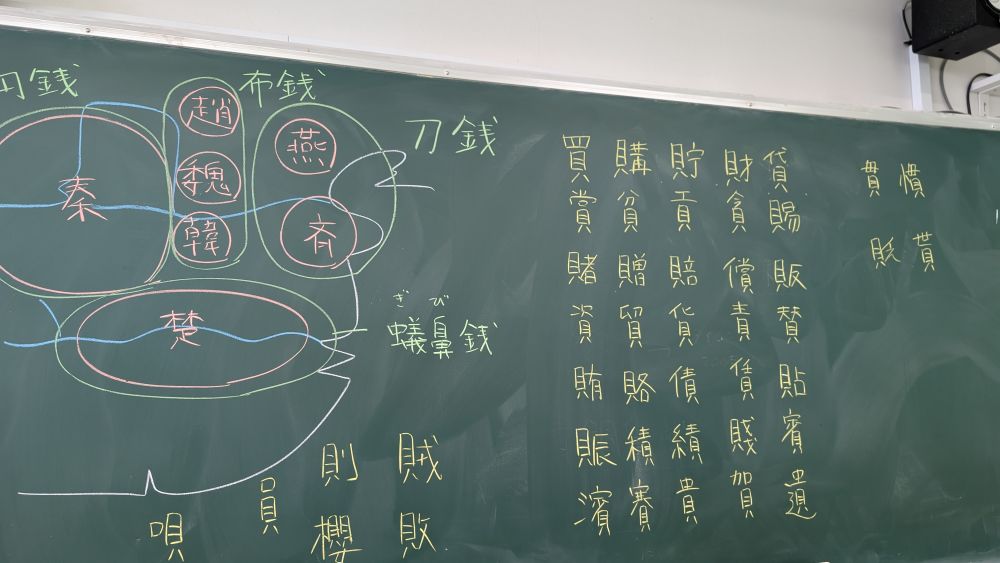 円銭 布銭 刀銭
趙
魏
韓
燕
斉
秦
楚
ぎ び
蟻鼻銭
則 賊
員
唄 櫻 敗
買 購 貯 財 貸
賞 貧 貢 貪 賜
賭 贈 賠 償 販
資 貿 貨 責 賛
賄 賂 債 賃 貼
賑 積 績 賤 賓
濱 賽 貴 賀 遺
貫 慣
貶 貰